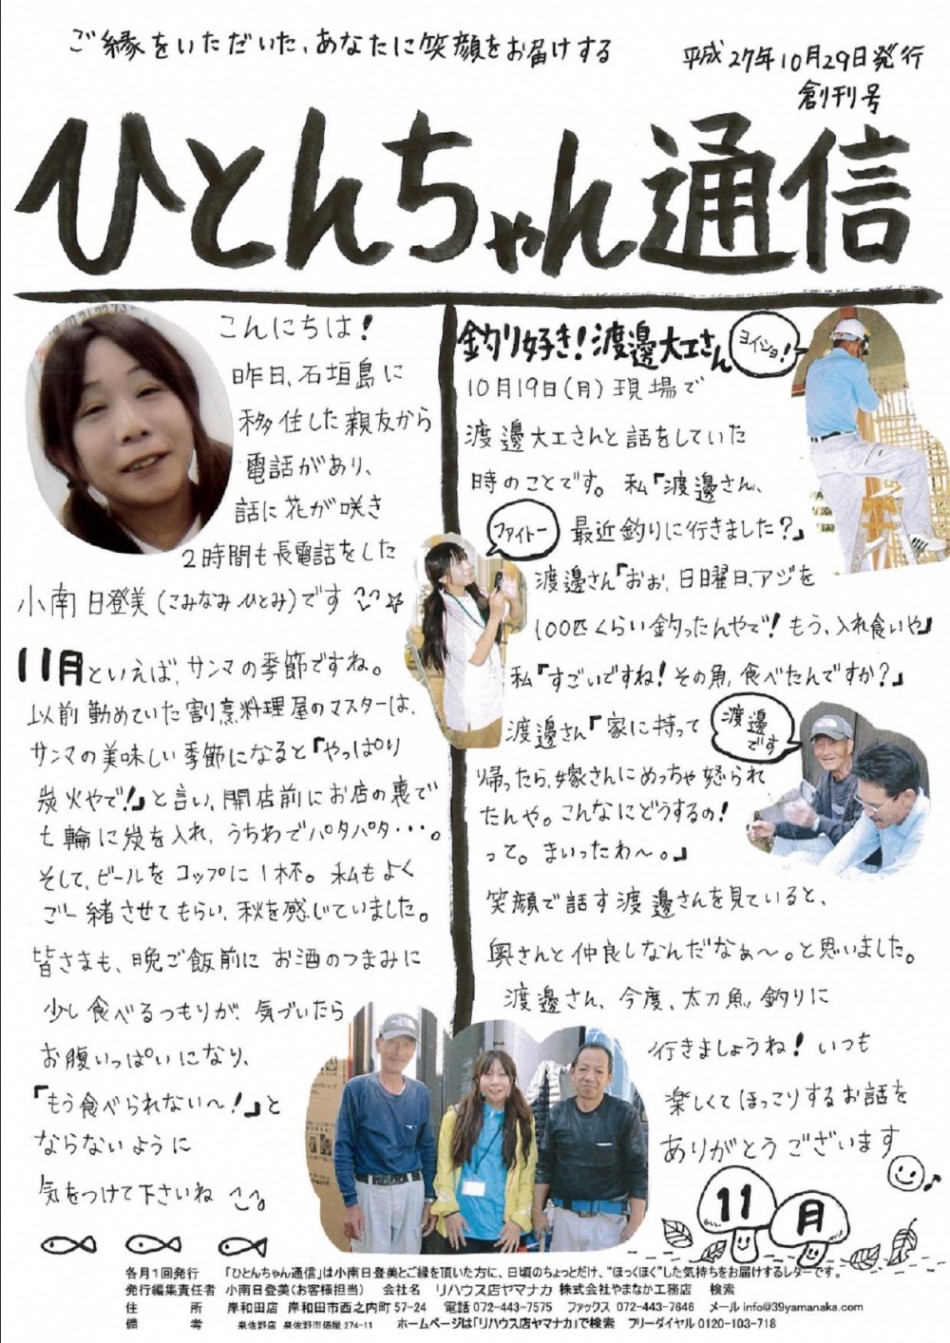 ご縁をいただいた、あなたに笑顔をお届けする
平成27年10月29日発行
創刊号
ひとんちゃん通信
こんにちは!
昨日、石垣島に
移住した親友から
電話があり、
話に花が咲き
2時間も長電話をした
小南日登美(こみなみひとみ)です
11月といえば、サンマの季節ですね。
以前勤めていた割烹料理屋のマスターは、
サンマの美味しい季節になると『やっぱり
炭火やで!』と言い、開店前にお店の裏で
七輪に炭を入れ、うちわでパタパタ・・・。
そして、ビールをコップに1杯。私もよく
ご一緒させてもらい、秋を感じていました。
皆さまも、晩ご飯前にお酒のつまみに
少し食べるつもりが、気づいたら
お腹いっぱいになり、
『もう食べられない～!』と
ならないように
気をつけて下さいね
釣り好き!渡邊大工さん
ヨイショ!
10月19日(月)現場で
渡邊大工さんと話をしていた
時のことです。私『渡邊さん、
ファイトー
最近釣りに行きました?』
渡邊さん『おぉ、日曜日、アジを
100匹くらい釣ったんやで!もう、入れ食いや』
私『すごいですね!その魚、食べたんですか?』
渡邊さん『家に持って
渡邊
です
帰ったら、嫁さんにめっちゃ怒られ
たんや。こんなにどうするの!
って。まいったわ～。』
笑顔で話す渡邊さんを見ていると、
奥さんと仲良しなんだなぁ～。と思いました。
渡邊さん、今度、太刀魚釣りに
行きましょうね!いつも
楽しくてほっこりするお話を
ありがとうございます
11
月
各月1回発行 「ひとんちゃん通信」は小南日登美とご縁を頂いた方に、日頃のちょっとだけ、“ほっくほく”した気持ちをお届けするレターです。
発行編集責任者 小南日登美(お客様担当) 会社名 リハウス店ヤマナカ 株式会社やまなか工務店 検索
住所 岸和田店 岸和田市西之内町57-24 電話072-443-7575 ファックス 072-443-7646 メール info@39yamanaka.com
備考 泉佐野店 泉佐野市鶴原274-11 ホームページは「リハウス店ヤマナカ」で検索 フリーダイヤル 0120-103-718